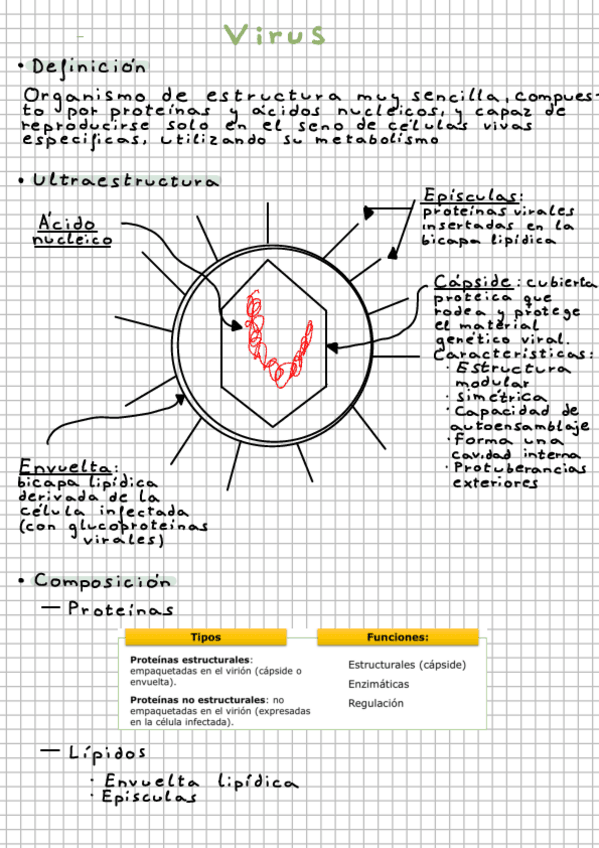 Virus
• Definición
Organismo de estructura muy sencilla, compues-
to por proteínas y ácidos nucleicos, y capaz de
reproducirse solo en el seno de células vivas
especificas, utilizando su metabolismo
• Ultraestructura
Ácido
nucleico
Episculas:
proteinas virales
insertadas en la
bicapa lipídica
Cápside: cubierta
protéica que
rodea y protege
el material
genético viral.
Características:
· Estructura
modular
· Simétrica
· Capacidad de
autoensamblaje
· Forma una
cavidad interna
· Protuberancias
exteriores
Envuelta:
bicapa lipídica
derivada de la
célula infectada
(con glucoproteínas
virales)
• Composición
— Proteínas
Tipos
Proteínas estructurales:
empaquetadas en el virión (cápside o
envuelta).
Proteínas no estructurales: no
empaquetadas en el virión (expresadas
en la célula infectada).
Funciones:
Estructurales (cápside)
Enzimáticas
Regulación
— Lípidos
· Envuelta lipídica
· Episculas